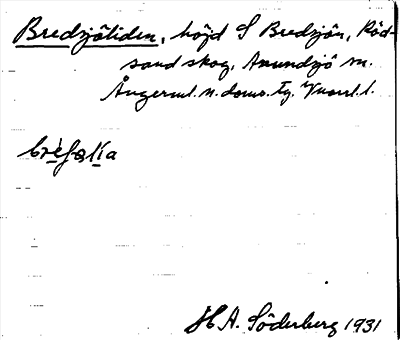 Bredsjöliden, höjd S Bredsjön, Röd-
sand skog, Anundsjö sn.
Ångerml. n. doms. tg. Vnorrl. l.
H A. Söderberg 1931